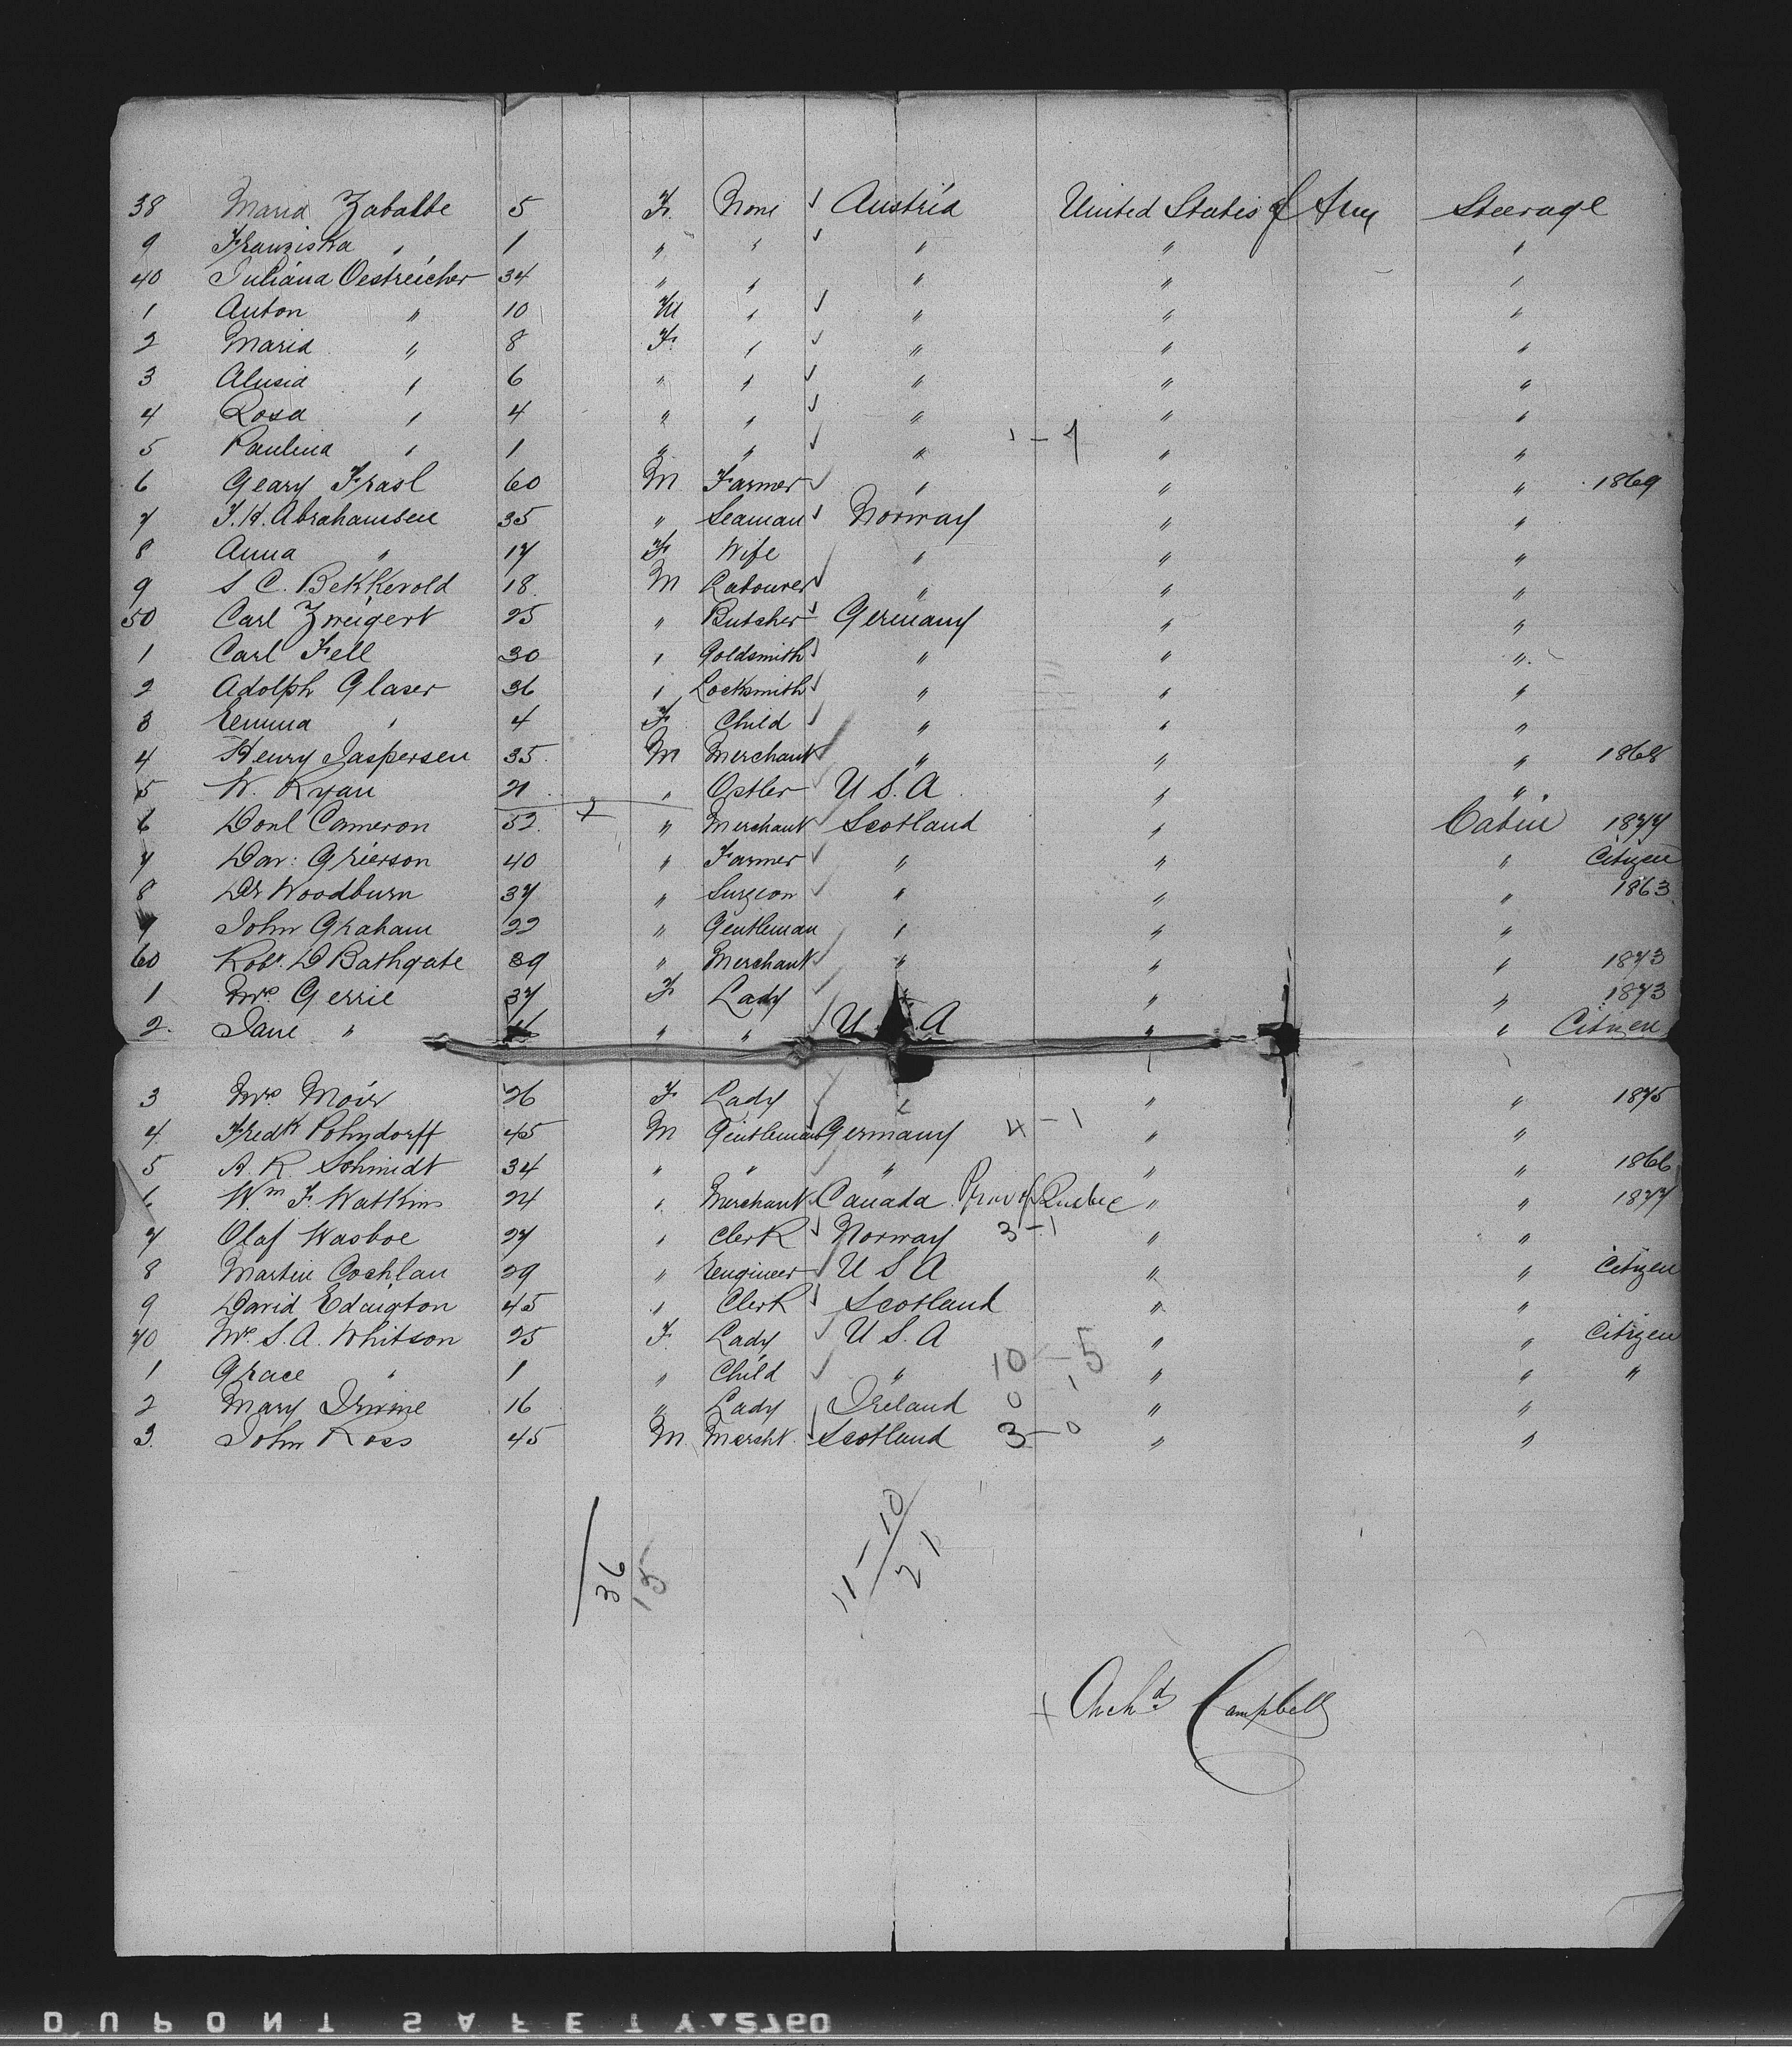 38 Maria Zabatte 5 F. None ✓ Austria United States of Am Steerage
9 Franziska " 1 " " ✓ " " "
40 Juliana Oestreicher 34 " " " " "
1 Anton " 10 M " ✓ " " "
2 Maria " 8 F. " ✓ " " "
3 Alusia " 6 " " ✓ " " "
4 Rosa " 4 " " ✓ " " "
5 Paulina " 1 " " ✓ " " "
6 Geary Frasl 60 M Farmer ✓ " " " 1869
7 J. H. Abrahamsen 35 " Seaman ✓ Norway " "
8 Anna " 17 F. Wife " " "
9 S C. Bekkevold 18. M Labourer ✓ " " "
50 Carl Zweigert 25 " Butcher ✓ Germany " "
1 Carl Fell 30 " Goldsmith ✓ " " "
2 Adolph Glaser 36 " Locksmith ✓ " " "
3 Emma " 4 F. Child ✓ " " "
4 Henry Jaspersen 35. M Merchant ✓ " " " 1868
5 W. Ryan 21 " Ostler ✓ U S. A " "
6 Donl Cameron 52. " Merchant ✓ Scotland " Cabin 1877
7 Dav: Grierson 40 " Farmer ✓ " " " Citizen
8 Dr Woodburn 37 " Surgeon ✓ " " " 1863
9 John Graham 22 " Gentleman " " "
60 Robt. D Bathgate 39 " Merchant ✓ " " " 1873
1 Mrs Gerrie 37 F. Lady ✓ " " " 1873
2. Jane " " " ✓ U A " " Citizen
3 Mrs Moir 26 F. Lady ✓ " " " 1875
4 Fredk Pohndorff 45 M Gentleman Germany 4 - 1 " "
5 A. R. Schmidt 34 " " ✓ " " " 1866
6 Wm F. Watkins 24 " Merchant Canada Prov of Quebec " " 1877
7 Olaf Wasboe 27 " Clerk ✓ Norway 3 - 1 " "
8 Martin Cochlan 29 " Engineer ✓ U S A " " Citizen
9 David Edington 45 " Clerk ✓ Scotland " "
70 Mrs S. A. Whitson 25 F. Lady ✓ U S. A " " Citizen
1 Grace " 1 " Child ✓ " 10 - 5 " " "
2 Mary Irvine 16 " Lady Ireland 0 1 " "
3. John Ross 45 M. Mercht. ✓ Scotland 3 - 0 " "
36
15
11 - 10
21
Archd Campbell
DUPONT SAFETY 2760